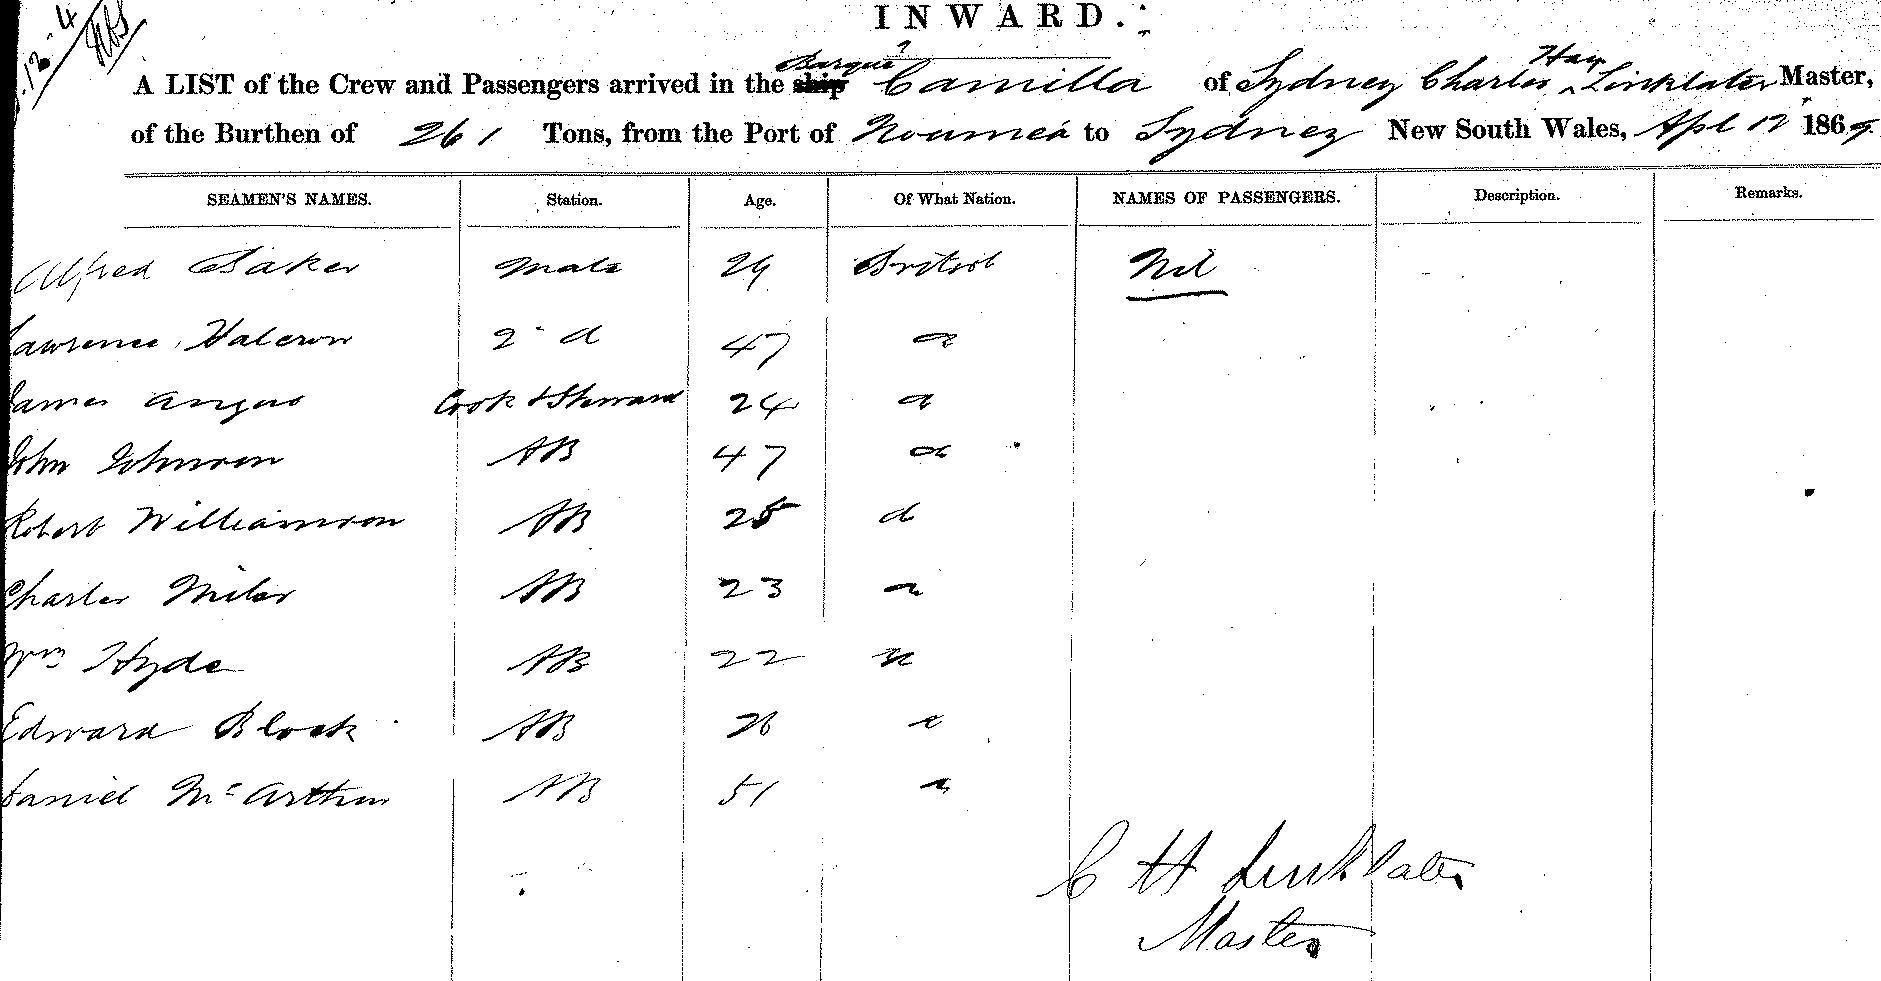 12-4
INWARD.
A LIST of the Crew and Passengers arrived in the ship Barque Camilla of Sydney Charles Hay Linklater Master,
of the Burthen of 261 Tons, from the Port of Noumea to Sydney New South Wales, Apl 12 1869
SEAMEN'S NAMES. Station. Age. Of What Nation. NAMES OF PASSENGERS. Description. Remarks.
Alfred Baker Mate 29 British Nil
Lawrence Halcrow 2 d 47 d
James Angus Cook & Steward 24 d
John Johnson AB 47 d
Robert Williamson AB 25 d
Charles Miler AB 23
Wm Hyde AB 22
Edward Block AB 26
Daniel McArthur AB 51
C H Linklater
Master